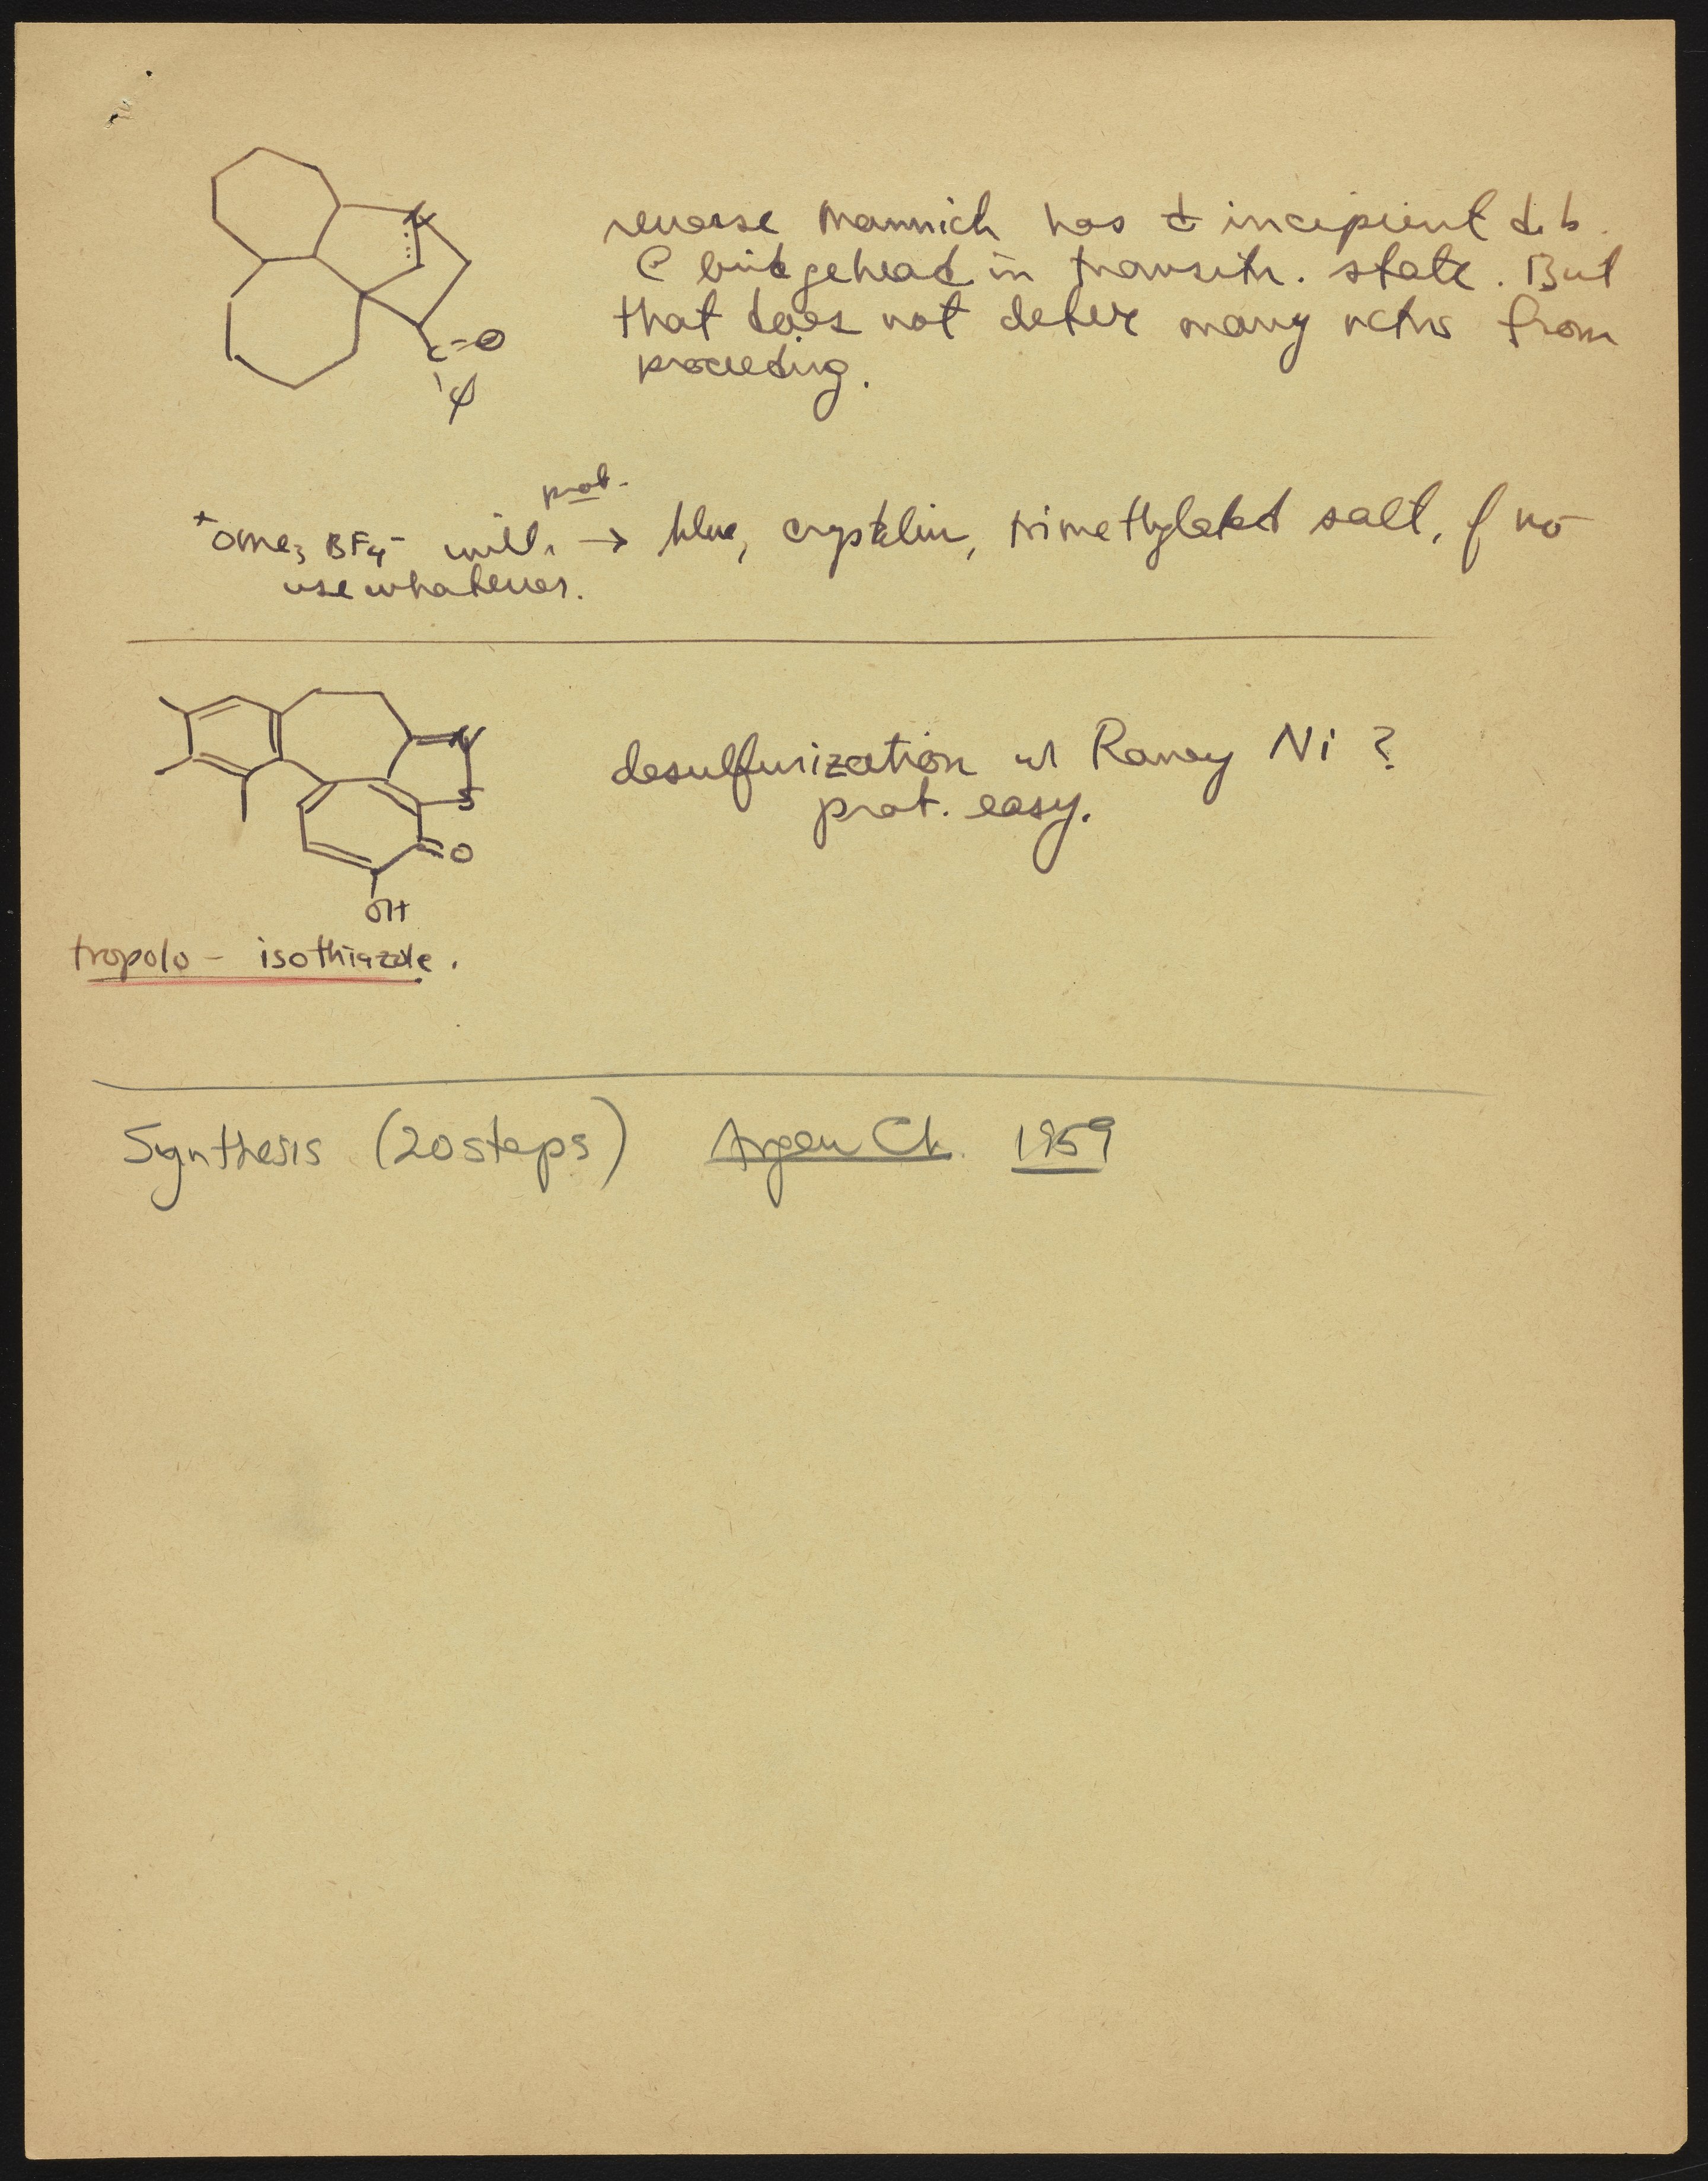 N
reverse Mannich has incipient d.b.
@ bridgehead in transitn. state. But
that does not deter many rctns from
proceeding.
C=O
φ
prob.
+OMe3 BF4- will → blue, crystalin, trimethylated salt, of no
use whatever.
N
S
O
OH
desulfurization w/ Raney Ni ?
prob. easy.
tropolo - isothiazole.
Synthesis (20 steps) Angew Ch. 1959